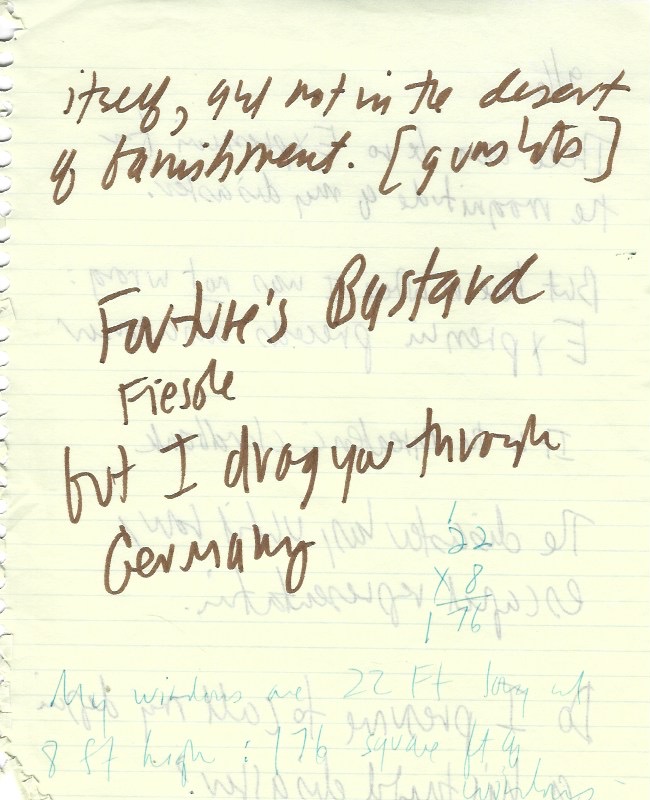 itself, and not in the desert
of banishment. [gunshots]
Fortune's Bastard
Fiesole
but I drag you through
Germany
22
x 8
176
My windows are 22 Ft long
8 ft high : 176 square ft of
windows